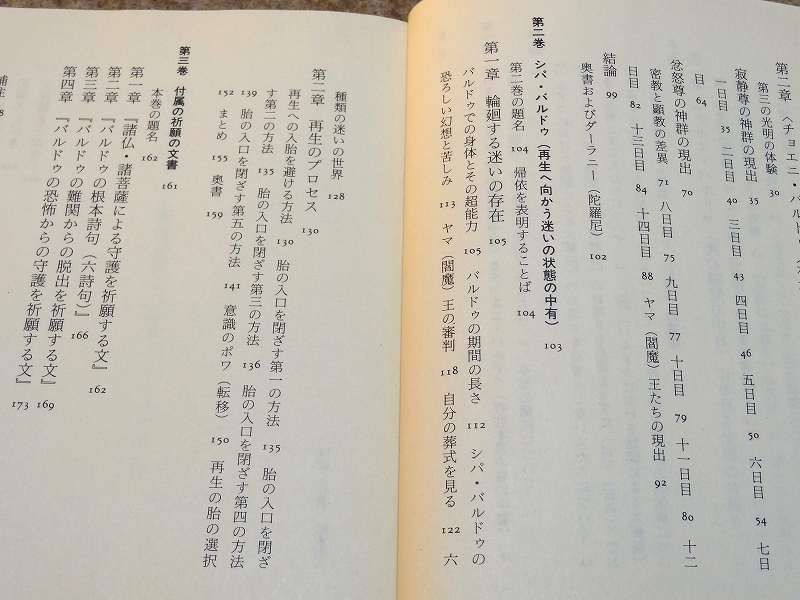 第二章 〈チョエニ・バル
第三の光明の体験 30
寂静尊の神群の現出 35
一日目 35 二日目 40 三日目 43 四日目 46 五日目 50 六日目 54 七日
目 64
忿怒尊の神群の現出 70
密教と顕教の差異 71 八日目 75 九日目 77 十日目 79 十一日目 80 十二
日目 82 十三日目 84 十四日目 88 ヤマ（閻魔）王たちの現出 92
結論 99
奥書およびダーラニー（陀羅尼） 102
第二巻 シパ・バルドゥ（再生へ向かう迷いの状態の中有） 103
第二巻の題名 104 帰依を表明することば 104
第一章 輪廻する迷いの存在 105
バルドゥでの身体とその超能力 105 バルドゥの期間の長さ 112 シパ・バルドゥの
恐ろしい幻想と苦しみ 113 ヤマ（閻魔）王の審判 118 自分の葬式を見る 122 六
種類の迷いの世界 128
第二章 再生のプロセス 130
再生への入胎を避ける方法 130 胎の入口を閉ざす第一の方法 135 胎の入口を閉ざ
す第二の方法 135 胎の入口を閉ざす第三の方法 136 胎の入口を閉ざす第四の方法
139 胎の入口を閉ざす第五の方法 141 意識のポワ（転移） 150 再生の胎の選択
152 まとめ 155 奥書 159
第三巻 付属の祈願の文書 161
本巻の題名 162
第一章 『諸仏・諸菩薩による守護を祈願する文』 162
第二章 『バルドゥの根本詩句（六詩句）』 166
第三章 『バルドゥの難関からの脱出を祈願する文』 169
第四章 『バルドゥの恐怖からの守護を祈願する文』 173
補注